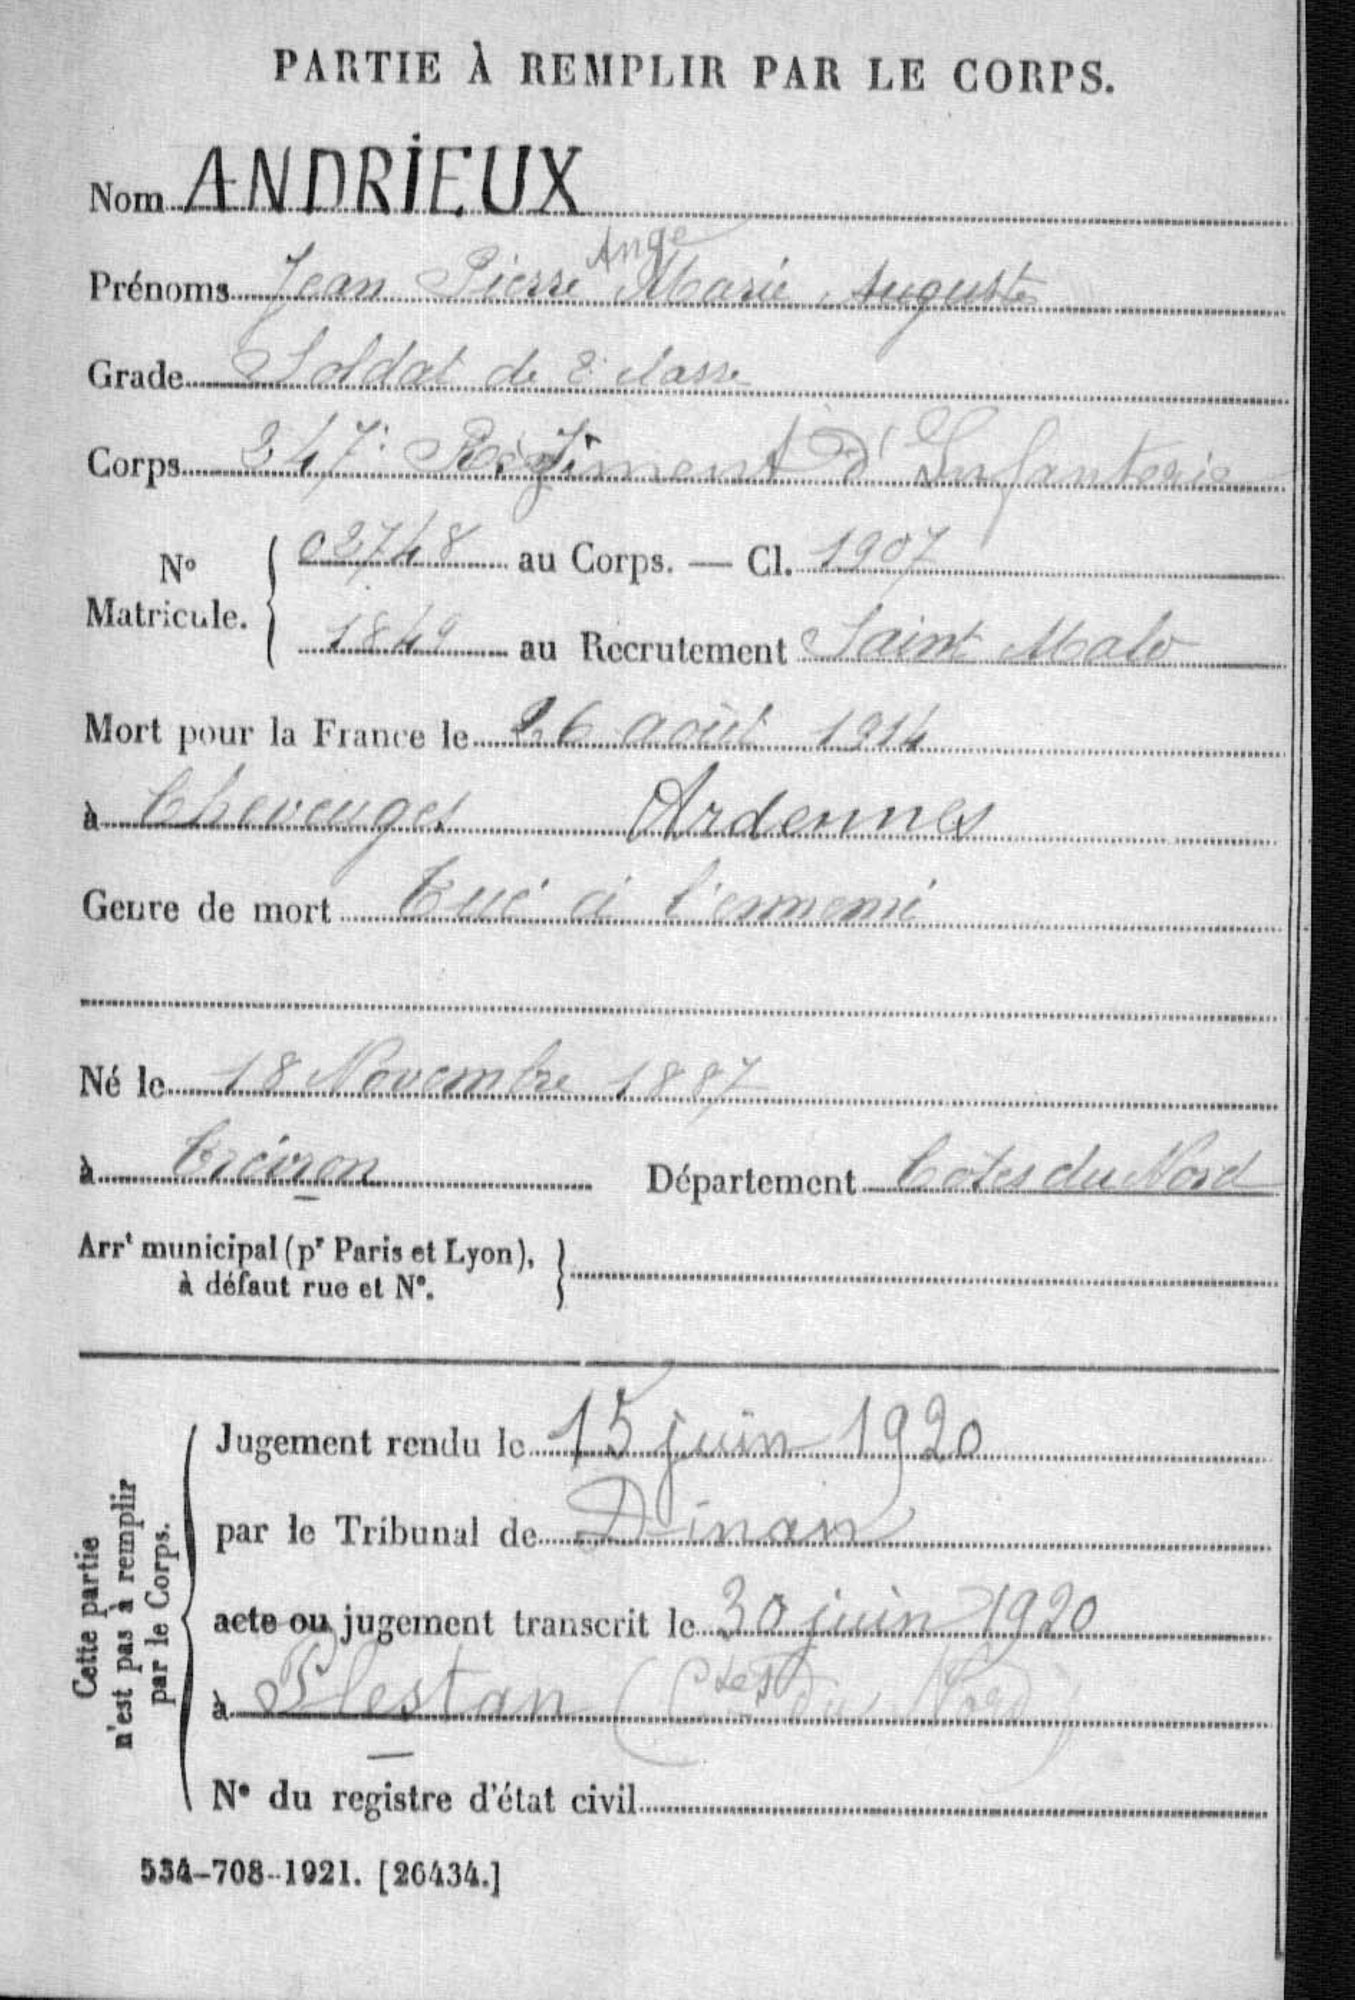 PARTIE À REMPLIR PAR LE CORPS.
Nom ANDRIEUX
Ange
Prénoms Jean Pierre Marie Auguste
Grade Soldat de 2e classe
Corps 247e Régiment d'Infanterie
No Matricule. { 02748 au Corps. — Cl. 1907
1849 au Recrutement Saint Malo
Mort pour la France le 26 août 1914
à Cheveuges Ardennes
Genre de mort Tué à l'ennemi
Né le 18 Novembre 1887
à Tréviron Département Côtes du Nord
Arrt municipal (pr Paris et Lyon),
à défaut rue et No.
Cette partie
n'est pas à remplir
par le Corps.
Jugement rendu le 15 juin 1920
par le Tribunal de Dinan
acte ou jugement transcrit le 30 juin 1920
à Plestan (Ctes du Nord)
No du registre d'état civil
534-708-1921. [26434.]